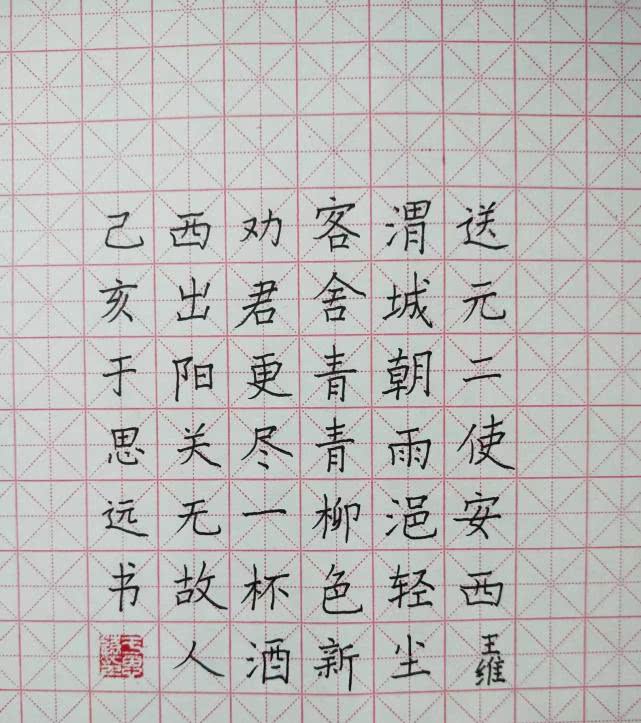 送元二使安西 王维
渭城朝雨浥轻尘
客舍青青柳色新
劝君更尽一杯酒
西出阳关无故人
己亥于思远书